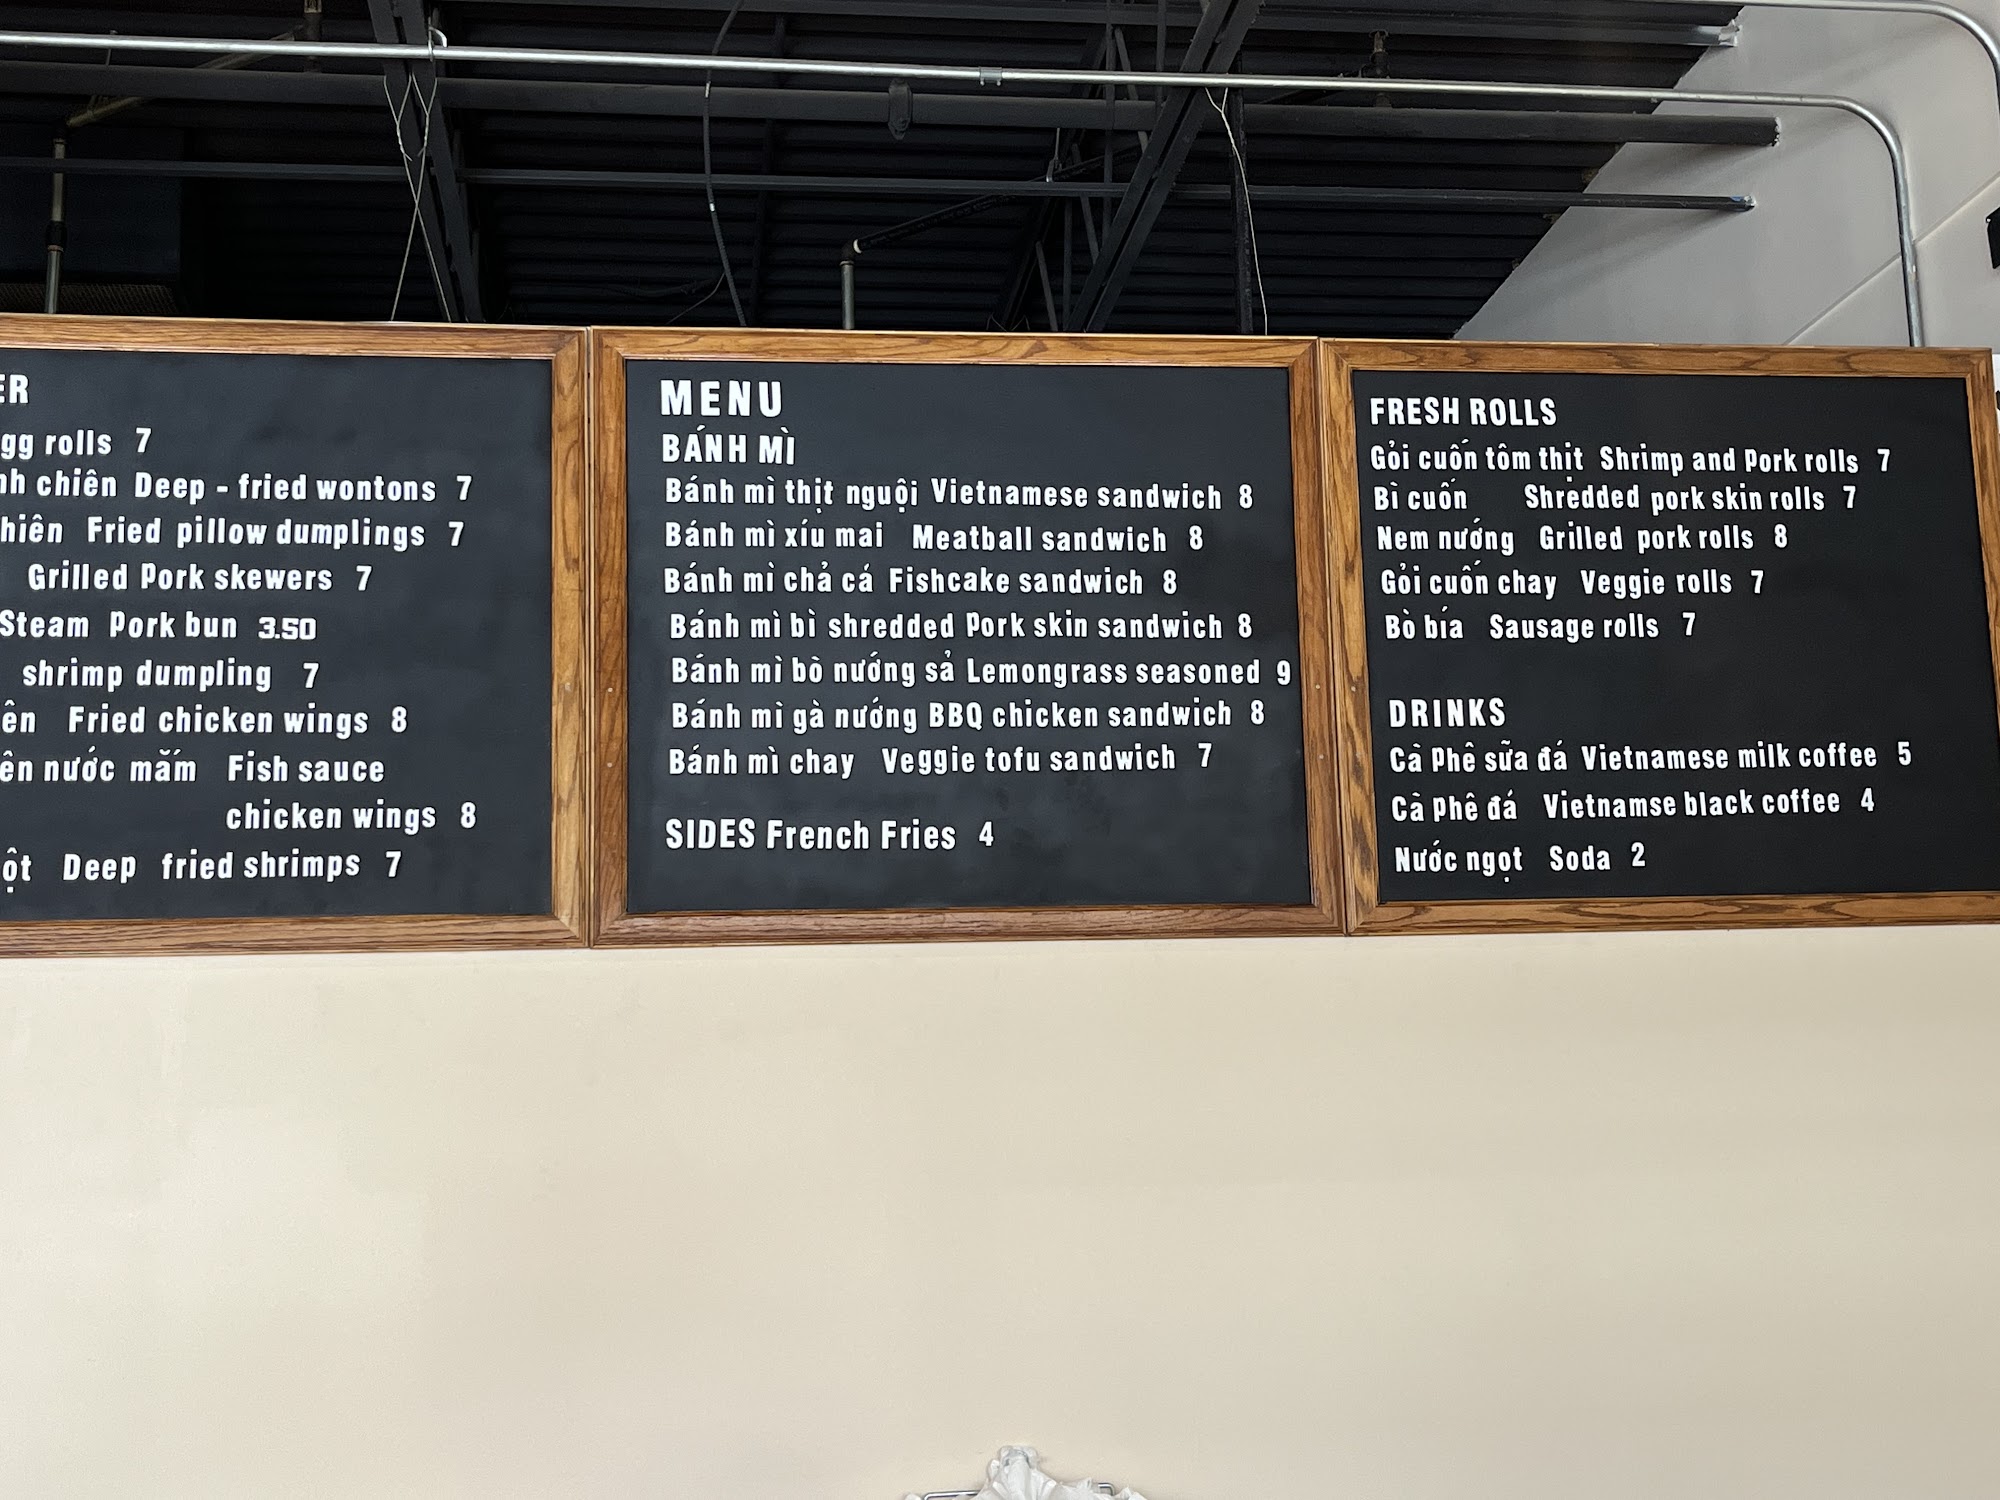 ER
gg rolls 7
nh chiên Deep - fried wontons 7
hiên Fried pillow dumplings 7
Grilled Pork skewers 7
Steam Pork bun 3.50
shrimp dumpling 7
ên Fried chicken wings 8
ên nước mắm Fish sauce
chicken wings 8
ột Deep fried shrimps 7
MENU
BÁNH MÌ
Bánh mì thịt nguội Vietnamese sandwich 8
Bánh mì xíu mai Meatball sandwich 8
Bánh mì chả cá Fishcake sandwich 8
Bánh mì bì shredded Pork skin sandwich 8
Bánh mì bò nướng sả Lemongrass seasoned 9
Bánh mì gà nướng BBQ chicken sandwich 8
Bánh mì chay Veggie tofu sandwich 7
SIDES French Fries 4
FRESH ROLLS
Gỏi cuốn tôm thịt Shrimp and Pork rolls 7
Bì cuốn Shredded pork skin rolls 7
Nem nướng Grilled pork rolls 8
Gỏi cuốn chay Veggie rolls 7
Bò bía Sausage rolls 7
DRINKS
Cà Phê sữa đá Vietnamese milk coffee 5
Cà Phê đá Vietnamse black coffee 4
Nước ngọt Soda 2